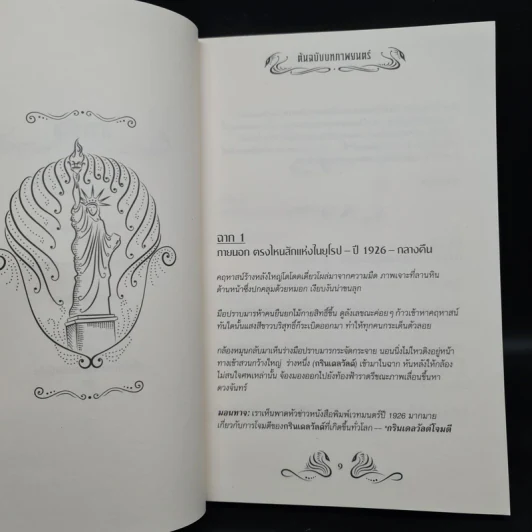 ต้นฉบับบทภาพยนตร์
ฉาก 1
ภายนอก ตรงไหนสักแห่งในยุโรป – ปี 1926 – กลางคืน
คฤหาสน์ร้างหลังใหญ่โดดเดี่ยวโผล่มาจากความมืด ภาพเจาะที่ลานหิน
ด้านหน้าซึ่งปกคลุมด้วยหมอก เงียบงันน่าขนลุก
มือปราบมารห้าคนยืนยกไม้กายสิทธิ์ขึ้น ดูลังเลขณะค่อยๆ ก้าวเข้าหาคฤหาสน์
ทันใดนั้นแสงสีขาวบริสุทธิ์ก็ระเบิดออกมา ทำให้ทุกคนกระเด็นตัวลอย
กล้องหมุนกลับมาเห็นร่างมือปราบมารกระจัดกระจาย นอนนิ่งไม่ไหวติงอยู่หน้า
ทางเข้าสวนกว้างใหญ่ ร่างหนึ่ง (กรินเดลวัลด์) เข้ามาในฉาก หันหลังให้กล้อง
ไม่สนใจศพเหล่านั้น จ้องมองออกไปยังท้องฟ้าราตรีขณะภาพเลื่อนขึ้นหา
ดวงจันทร์
มอนทาจ: เราเห็นพาดหัวข่าวหนังสือพิมพ์เวทมนตร์ปี 1926 มากมาย
เกี่ยวกับการโจมตีของกรินเดลวัลด์ที่เกิดขึ้นทั่วโลก — 'กรินเดลวัลด์โจมตี
9